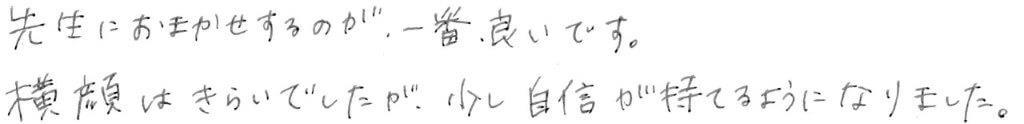 先生におまかせするのが、一番、良いです。
横顔はきらいでしたが、少し自信が持てるようになりました。